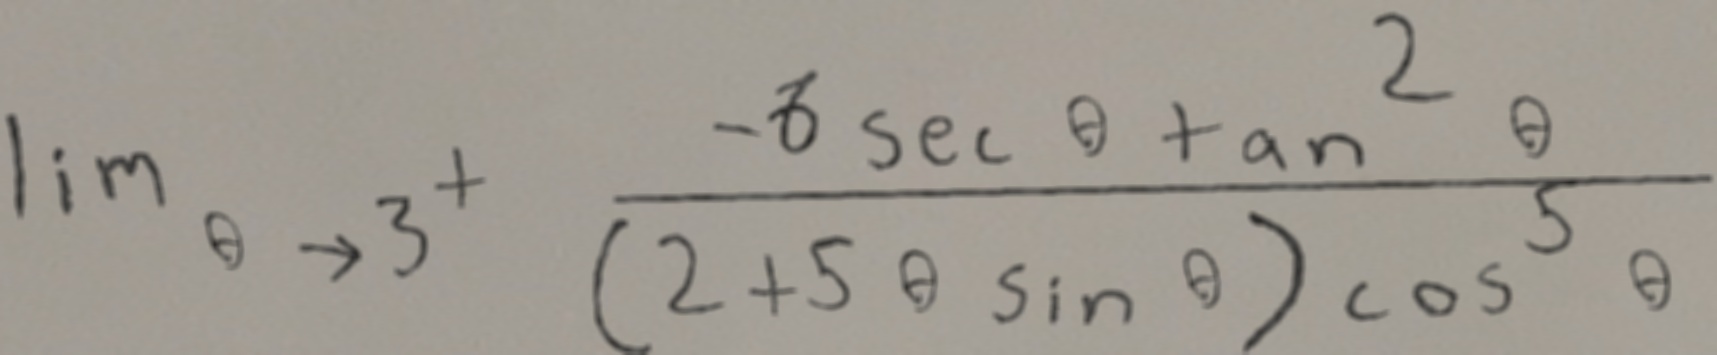 \lim_{\theta \to 3^+} \frac{-6 \sec \theta \tan^2 \theta}{(2+5 \theta \sin \theta) \cos^5 \theta}